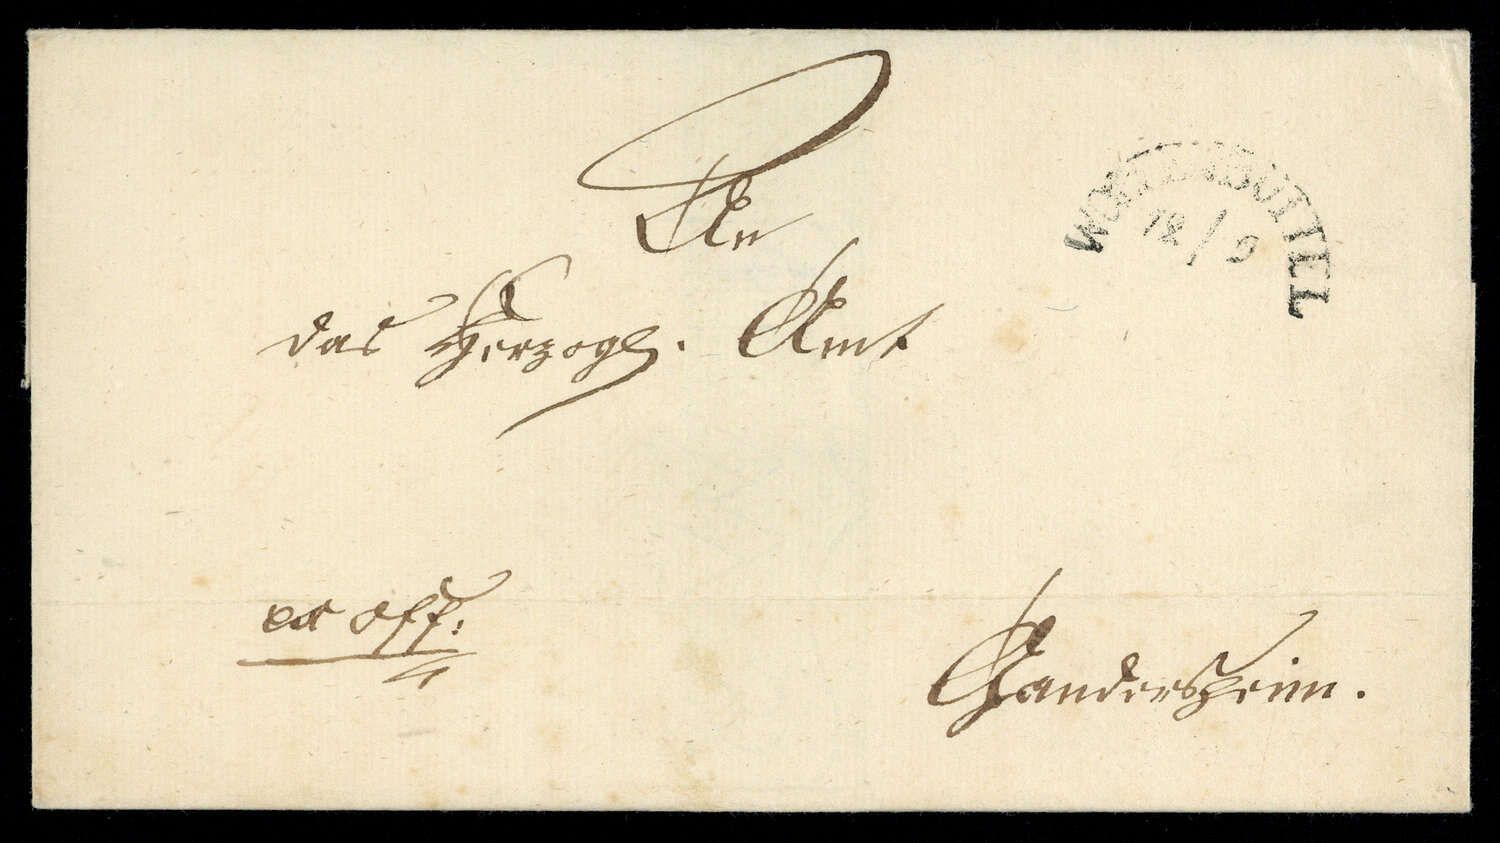 WOLFENBÜTTEL
12/9
An
das Herzogl. Amt
ex off:
Gandersheim.